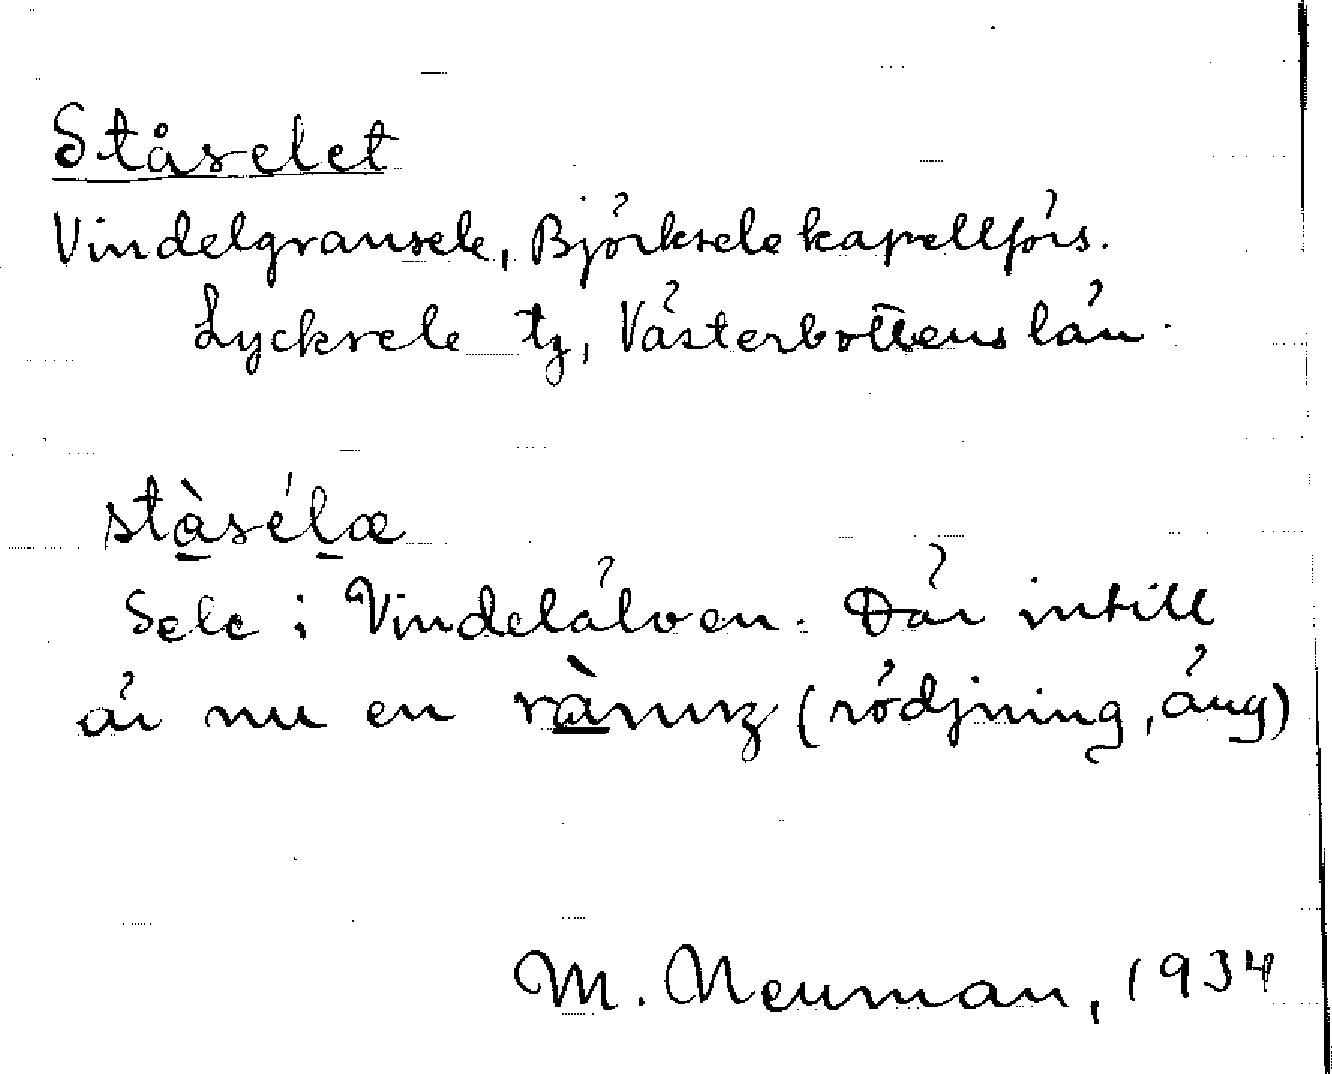 Ståselet
Vindelgransele, Björksele kapellförs.
Lycksele tg, Västerbottens län.
stàsélæ
Sele i Vindelälven. Där intill
är nu en (rödjning, äng)
M. Neuman, 1934